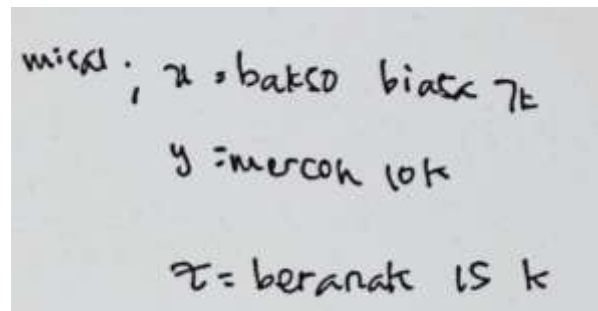 misal ; x = bakso biasa 7k
y = mercon 10k
z = beranak 15 k